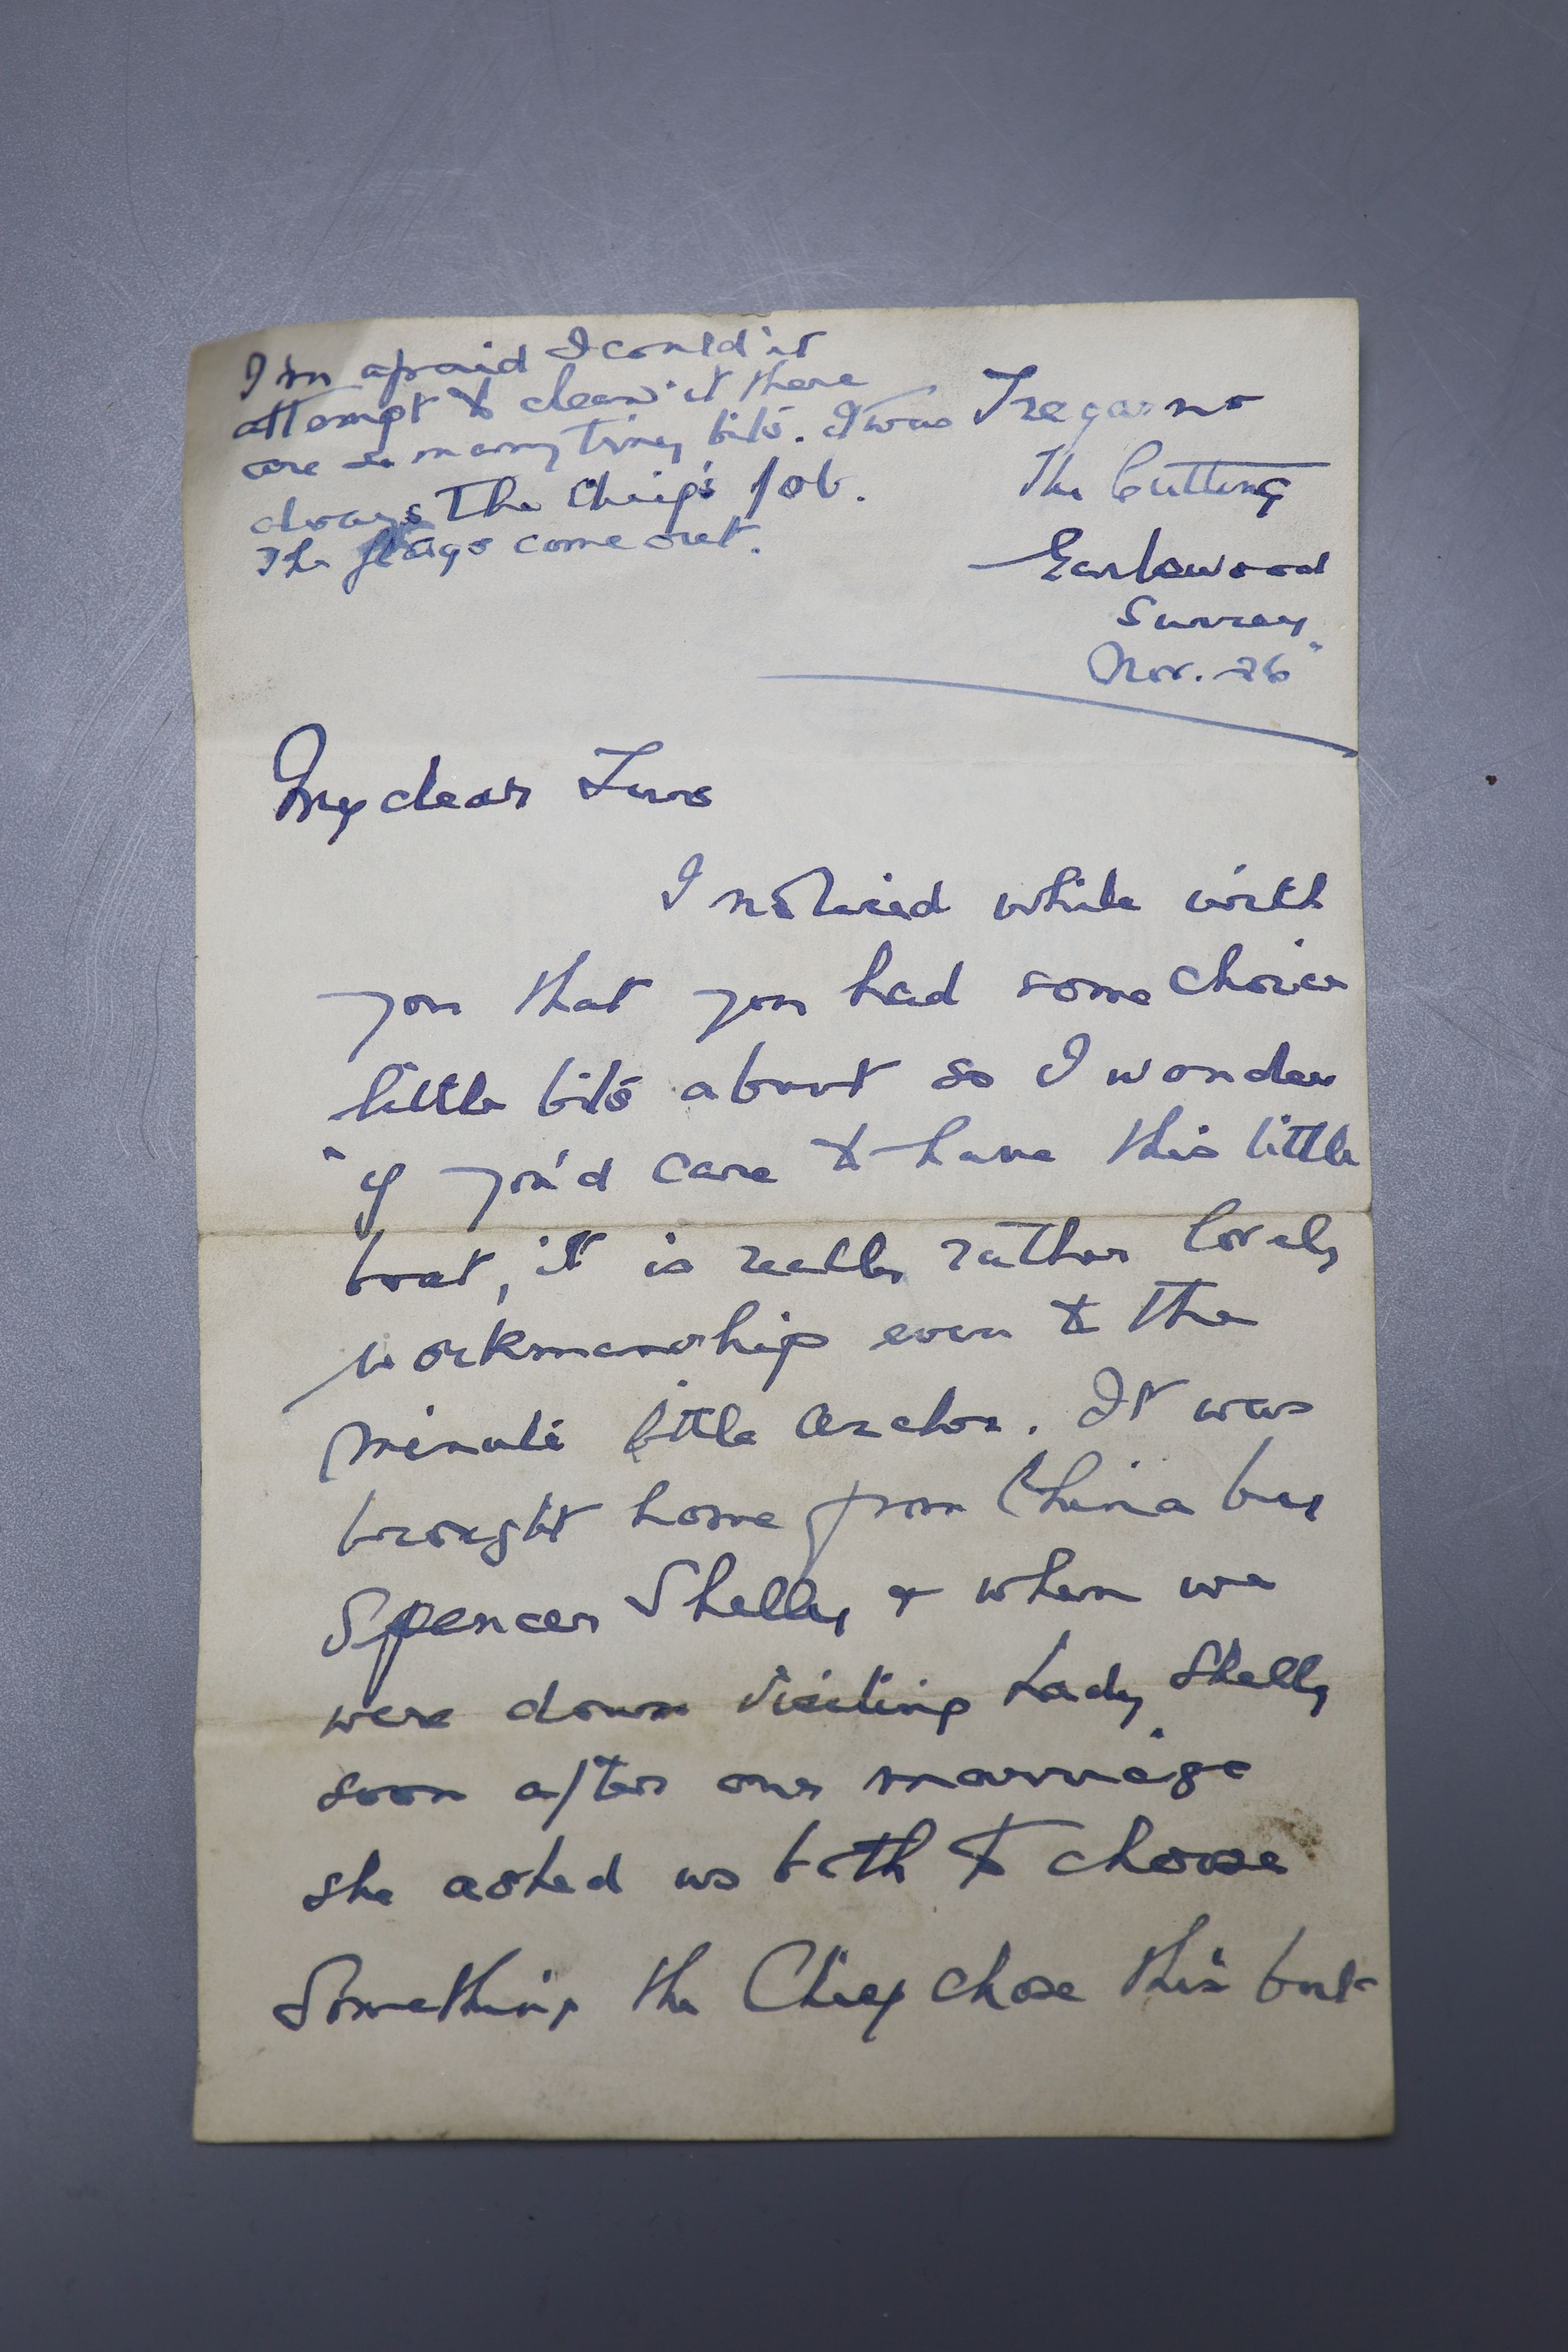 I'm afraid I could'nt
attempt to clean it there
are so many tiny bits. It was
always The Chief's job.
The flags come out.
Tregarno
The Cutting
Earlswood
Surrey
Nov. 26"
My dear
I noticed while with
you that you had some choice
little bits about so I wonder
if you'd care to have this little
boat, it is really rather lovely
workmanship even to the
minute little anchor. It was
brought home from China by
Spencer Shelly & when we
were down visiting Lady Shelly
soon after our marriage
she asked us both to choose
Something the Chief chose this but